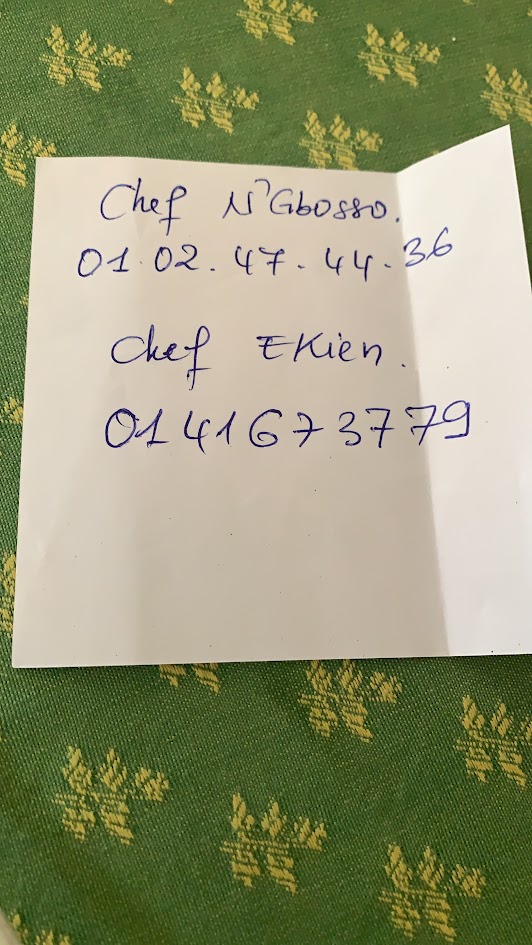 Chef N'Gbosso.
01.02.47.44.36
Chef EKien.
0141673779